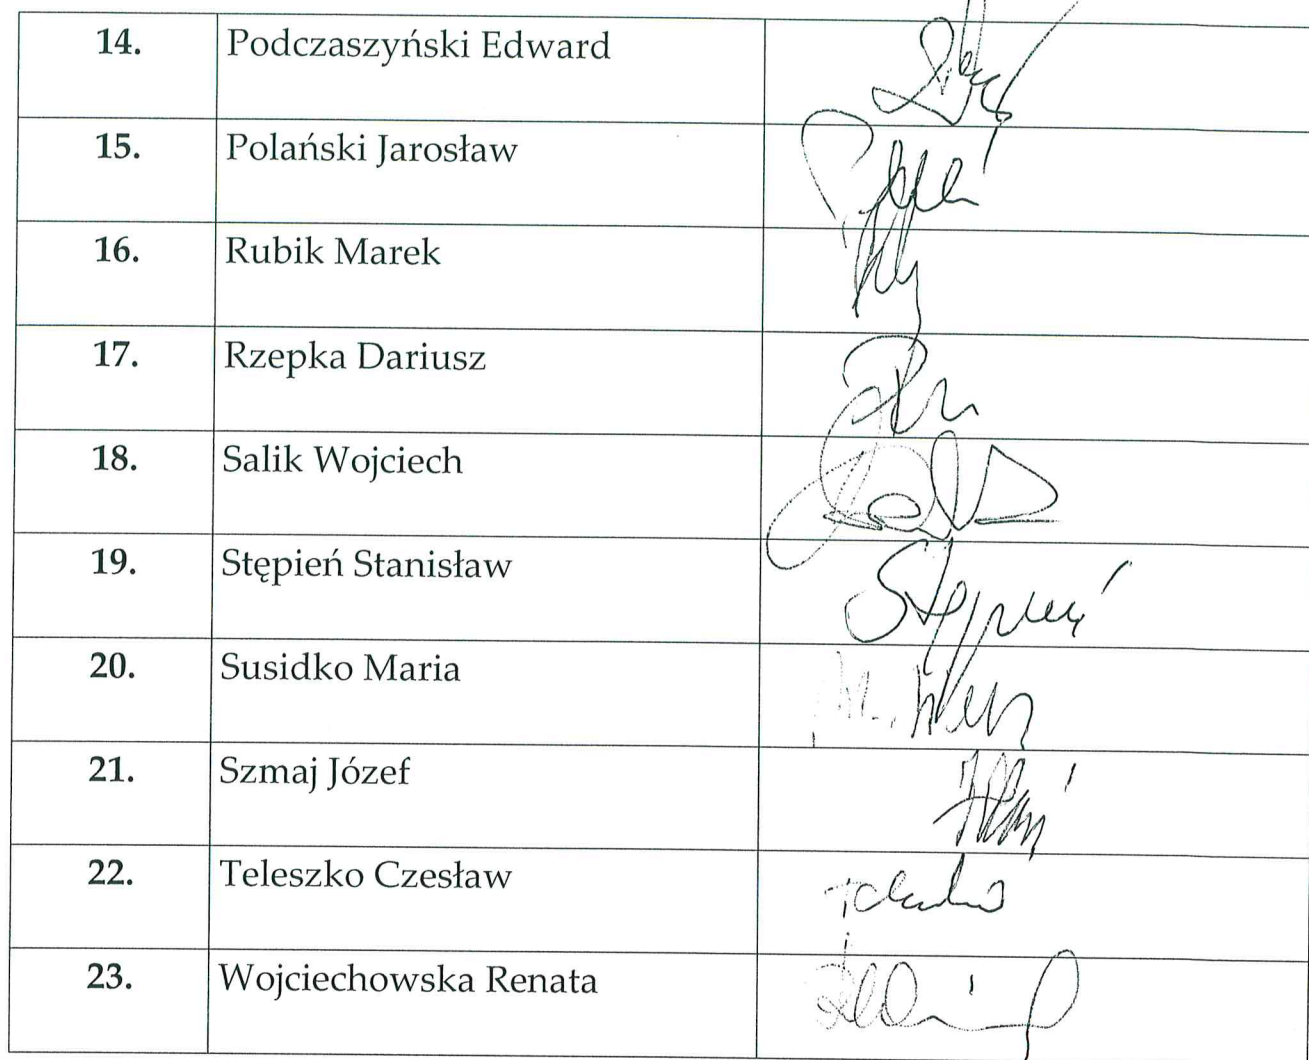 14. Podczaszyński Edward
15. Polański Jarosław
16. Rubik Marek
17. Rzepka Dariusz
18. Salik Wojciech
19. Stępień Stanisław Stępień
20. Susidko Maria
21. Szmaj Józef
22. Teleszko Czesław
23. Wojciechowska Renata